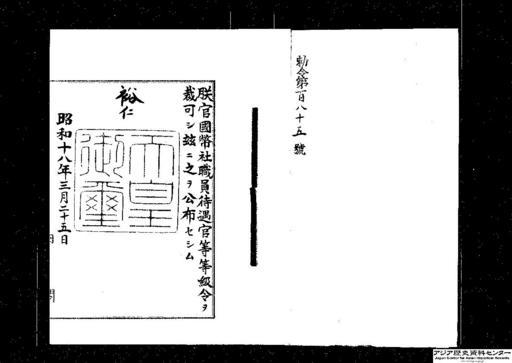 勅令第百八十五號
朕官國幣社職員待遇官等等級令ヲ
裁可シ玆ニ之ヲ公布セシム
裕仁
天皇
御璽
昭和十八年三月二十五日
アジア歴史資料センター
Japan Center for Asian Historical Records